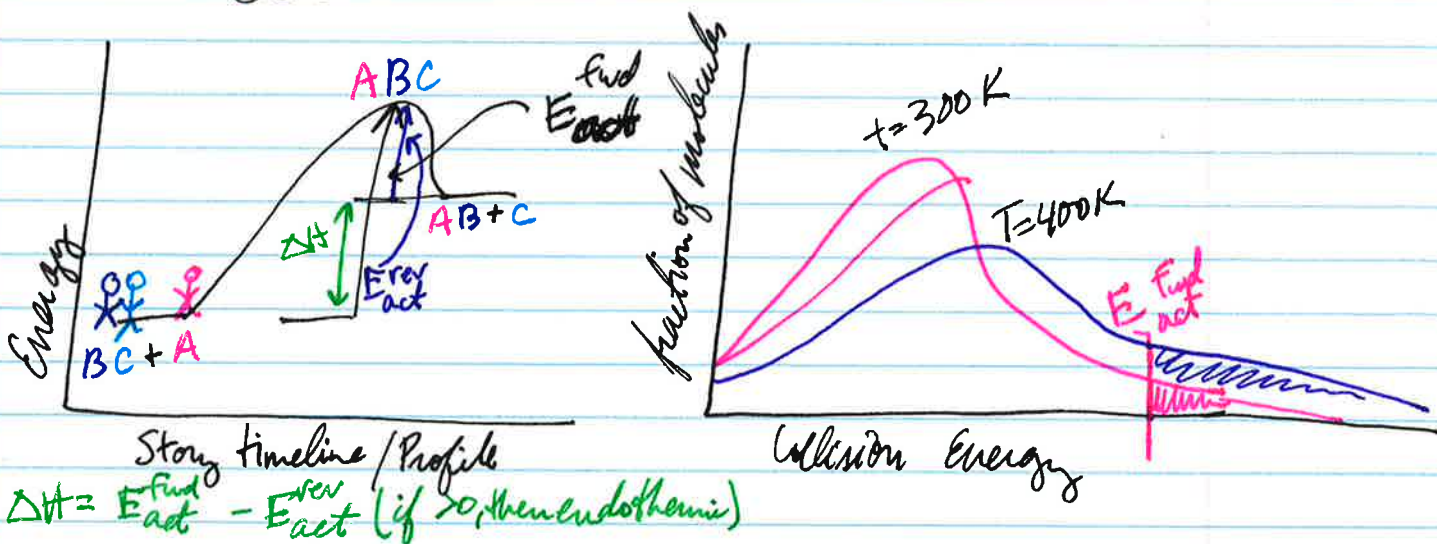 Energy
A B C
E fwd act
ΔH
AB + C
E rev act
BC + A
Story timeline / Profile
ΔH = E fwd act - E rev act (if >0, then endothermic)
fraction of molecules
t=300K
T=400K
E fwd act
Collision Energy